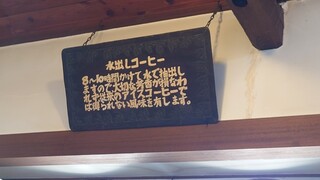 水出しコーヒー
8~10時間かけて水で抽出し
ますので大切な芳香が損なわ
れず従来のアイスコーヒーで
は得られない風味を有します。